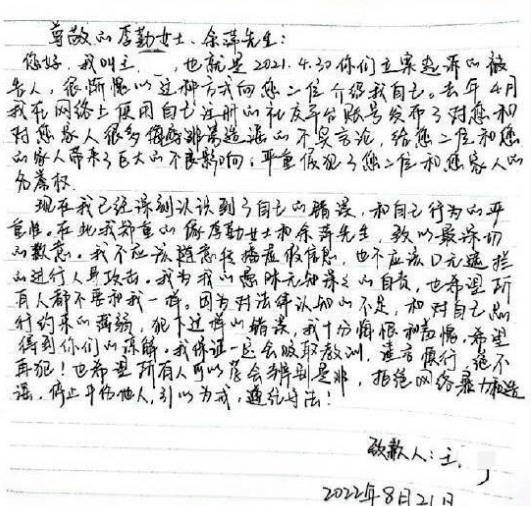 尊敬的李勤女士、余萍先生：
您好，我叫王 ，也就是2021.4.30你们立案起诉的被
告人，很惭愧以这种方式向您二位介绍我自己。去年4月
我在网络上使用自己注册的社交平台账号发布了对您和
对您家人很多侮辱诽谤造谣的不实言论，给您二位和您
的家人带来了巨大的不良影响，严重侵犯了您二位和您家人的
名誉权。
现在我已经深刻认识到了自己的错误，和自己行为的严
重性。在此我郑重的像李勤女士和余萍先生，致以最深切
的歉意。我不应该随意传播虚假信息，也不应该口无遮拦
的进行人身攻击。我为我的愚昧无知深深的自责，也希望所
有人都不要和我一样。因为对法律认知的不足，和对自己品
行约束的薄弱，犯下这样的错误，我十分悔恨和羞愧，希望
得到你们的谅解。我保证一定会吸取教训，谨言慎行，绝不
再犯！也希望所有人可以学会辨别是非，拒绝网络暴力和造
谣，停止中伤他人，引以为戒，遵纪守法！
致歉人：王
2022年8月21日